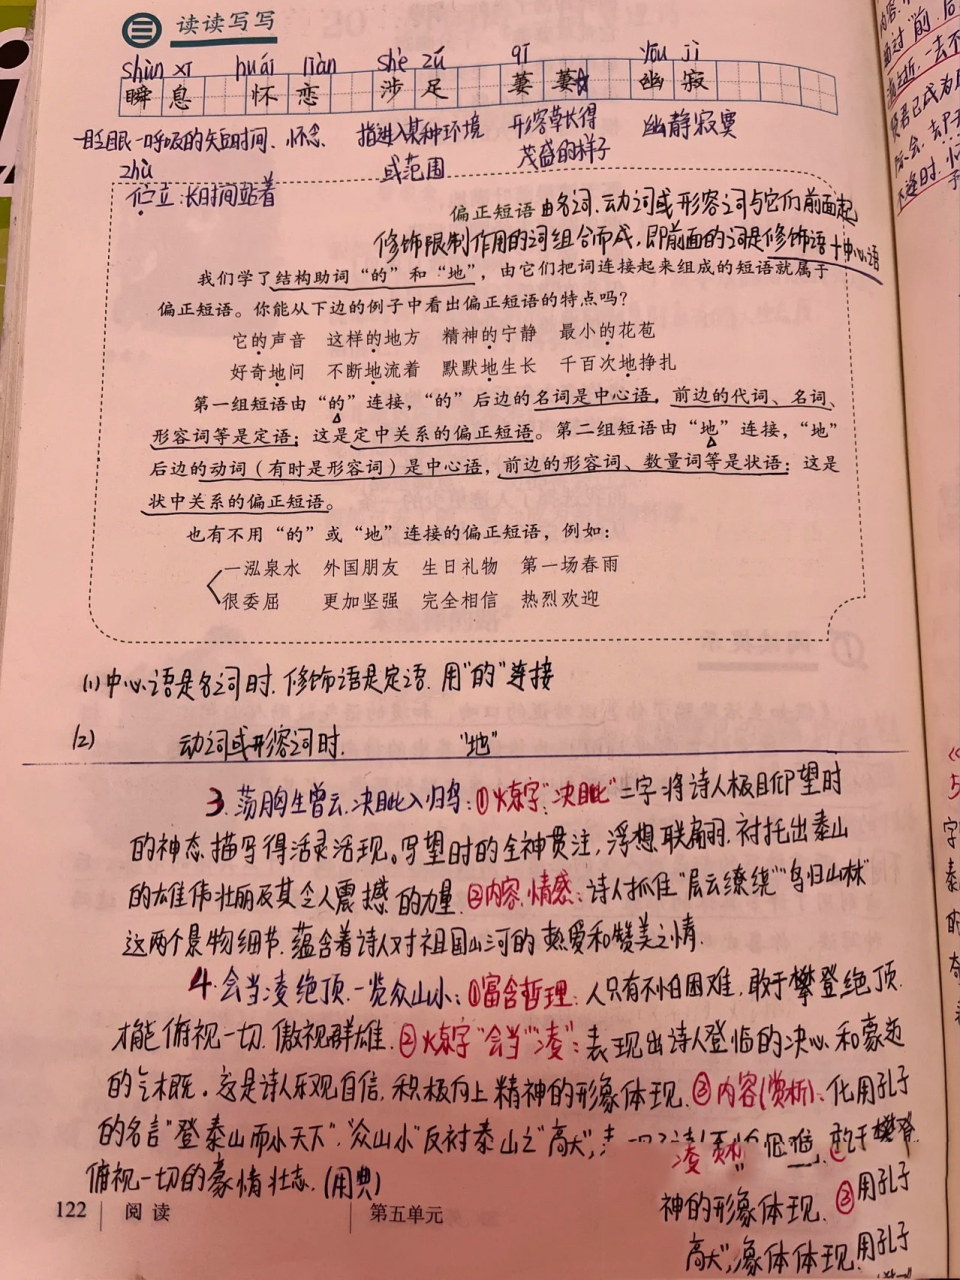 三 读读写写
shùn xī huái liàn shè zú qī yōu jì
瞬息 怀恋 涉足 萋萋 幽寂
眨眼一呼吸的短时间、怀念 指进入某种环境 形容草长得 幽静寂寞
或范围 茂盛的样子
zhù
伫立:长时间站着
偏正短语由名词、动词或形容词与它们前面起
修饰限制作用的词组合而成,即前面的词是修饰语+中心语
我们学了结构助词“的”和“地”,由它们把词连接起来组成的短语就属于
偏正短语。你能从下边的例子中看出偏正短语的特点吗?
它的声音 这样的地方 精神的宁静 最小的花苞
好奇地问 不断地流着 默默地生长 千百次地挣扎
第一组短语由“的”连接,“的”后边的名词是中心语,前边的代词、名词、
形容词等是定语;这是定中关系的偏正短语。第二组短语由“地”连接,“地”
后边的动词(有时是形容词)是中心语,前边的形容词、数量词等是状语;这是
状中关系的偏正短语。
也有不用“的”或“地”连接的偏正短语,例如:
一泓泉水 外国朋友 生日礼物 第一场春雨
很委屈 更加坚强 完全相信 热烈欢迎
(1)中心语是名词时,修饰语是定语,用“的”连接
(2) 动词或形容词时, “地”
3.荡胸生曾云,决眦入归鸟:①炼字“决眦”二字将诗人极目仰望时
的神态描写得活灵活现。写望时的全神贯注,浮想联翩,衬托出泰山
的雄伟壮丽及其令人震撼的力量.②内容,情感:诗人抓住“层云缭绕”“鸟归山林”
这两个景物细节,蕴含着诗人对祖国山河的热爱和赞美之情.
4.会当凌绝顶,一览众山小:①富含哲理:人只有不怕困难,敢于攀登绝顶,
才能俯视一切,傲视群雄.②炼字“会当”“凌”:表现出诗人登临的决心和豪迈
的气概。这是诗人乐观自信,积极向上精神的形象体现.③内容(赏析):化用孔子
的名言“登泰山而小天下”,“众山小”反衬泰山之“高大”,
俯视一切的豪情壮志.(用典)
神的形象体现.③用孔子
高大”,象体体现.用孔子
122 阅读 第五单元